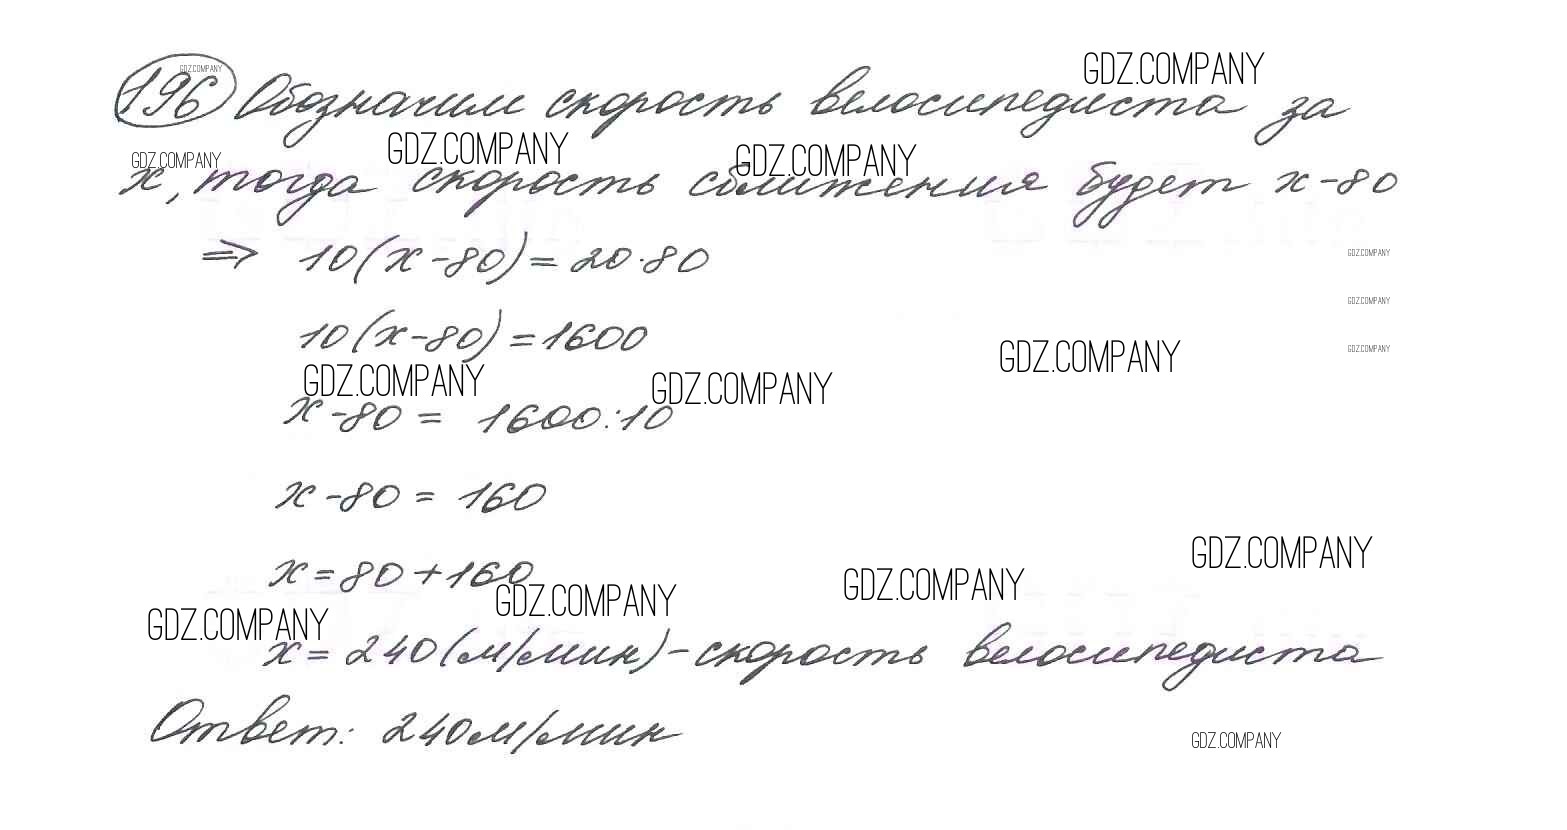 GDZ.COMPANY
GDZ.COMPANY
196 Обозначим скорость велосипедиста за
GDZ.COMPANY
GDZ.COMPANY
GDZ.COMPANY
х, тогда скорость сближения будет х-80
⇒ 10(х-80)=20·80
GDZ.COMPANY
GDZ.COMPANY
10(х-80)=1600
GDZ.COMPANY
GDZ.COMPANY
GDZ.COMPANY
GDZ.COMPANY
х-80 = 1600:10
х-80 = 160
GDZ.COMPANY
х=80+160
GDZ.COMPANY
GDZ.COMPANY
GDZ.COMPANY
х=240(м/мин)-скорость велосипедиста
Ответ: 240м/мин
GDZ.COMPANY